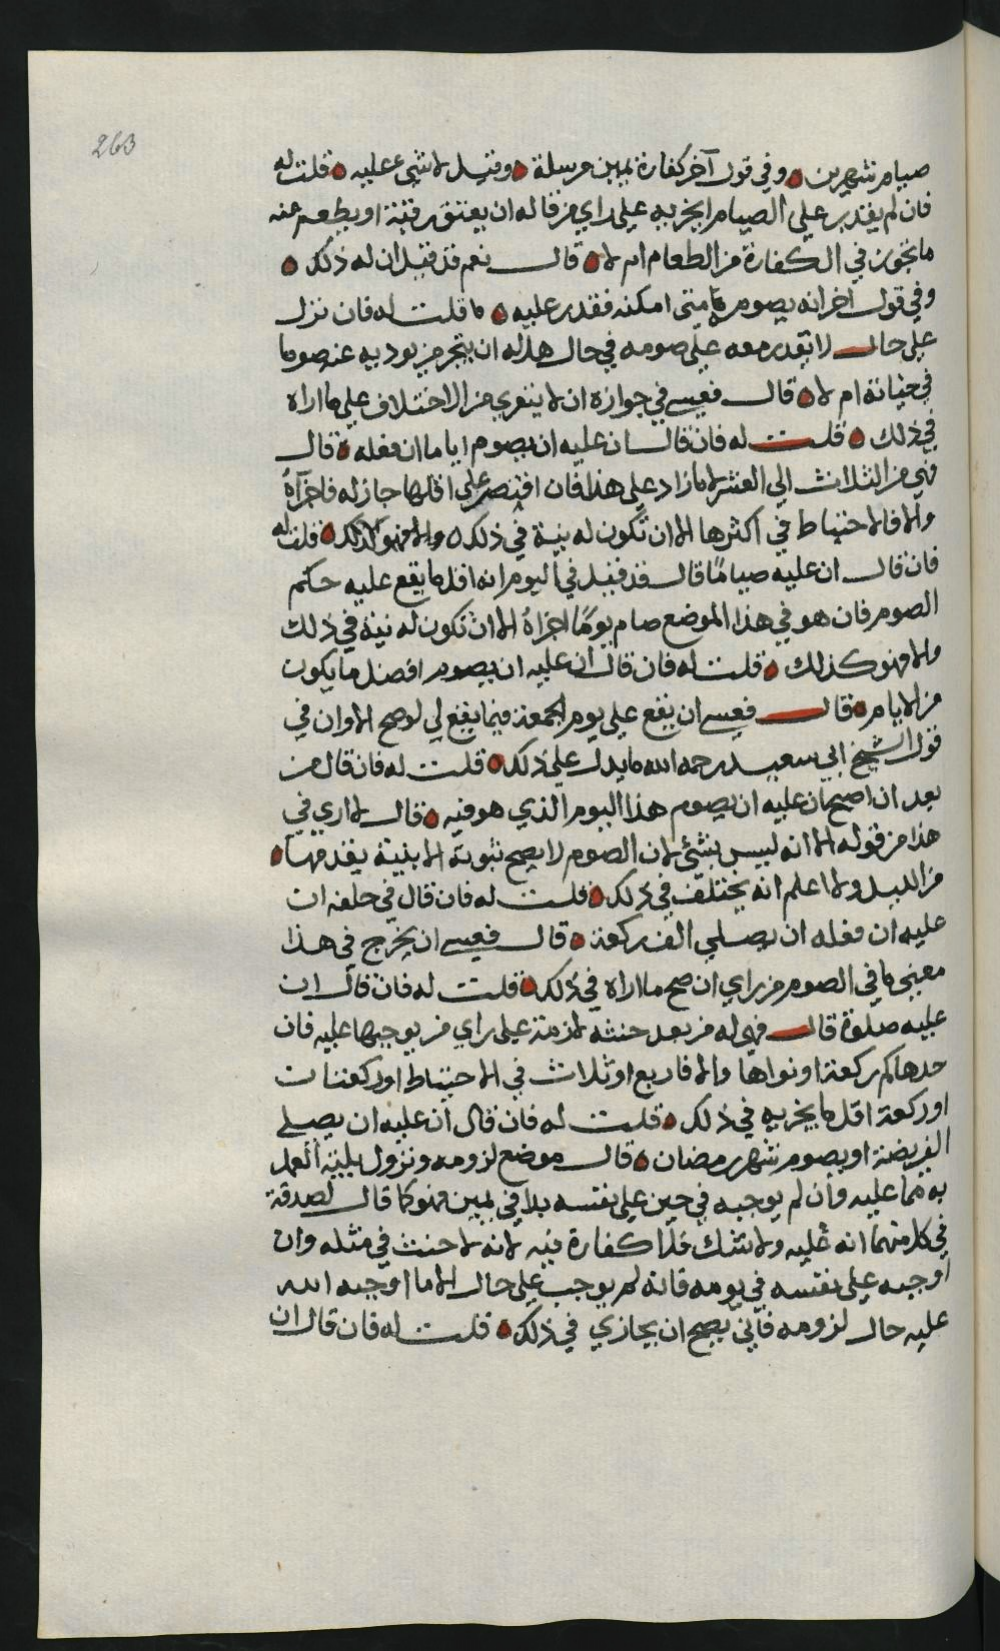 263
صيام شهرين وفي قول آخر كفارة يمين مرسلة وقيل لا شيء عليه قلت له
فان لم يقدر علي الصيام ايجزيه علي راي من قاله ان يعتق رقبة او يطعم عنه
ما يجوز في الكفارة من الطعام ام لا قال نعم قد قيل ان له ذلك
وفي قول اخر انه يصوم متي امكنه فقدر عليه قلت له فان نزل
علي حال لا يقدر معه علي صومه في حال هل له ان يتجر من يود به عن صوما
في حياته ام لا قال فعسي في جوازه ان لا يتعري من الاختلاف علي ما اراه
في ذلك قلت له فان قال ان عليه ان يصوم اياما ان فعله قال
فهي من الثلاث الي العشر لا ما زاد علي هذا فان اقتصر علي اقلها جاز له فاجزاه
والا فالاحتياط في اكثرها الا ان تكون له نية في ذلك والا فهو كذلك قلت له
فان قال ان عليه صياما قال قد قيل في اليوم انه اقل ما يقع عليه حكم
الصوم فان هو في هذا الموضع صام يوما اجزاه الا ان تكون له نية في ذلك
والا فهو كذلك قلت له فان قال ان عليه ان يصوم افضل ما يكون
من الايام قال فعسي ان يقع علي يوم الجمعة فيما يقع لي لو صح الا وان في
قول الشيخ ابي سعيد رحمه الله ما يدل علي ذلك قلت له فان قال من
بعد ان اصبح ان عليه ان يصوم هذا اليوم الذي هو فيه قال لا اري في
هذا من قوله الا انه ليس بشئ لان الصوم لا يصح ثبوته الا بنية يقدمها
من الليل ولا اعلم انه يختلف في ذلك قلت له فان قال في حلفه ان
عليه ان فعله ان يصلي الف ركعة قال فعسي ان يخرج في هذا
معني ما في الصوم من راي ان صح ما اراه في ذلك قلت له فان قال ان
عليه صلوة قال فهي له من بعد حنثه لازمة علي راي من يوجبها عليه فان
حدها كم ركعة او نواها والا فاربع او ثلاث في الاحتياط او ركعتان
او ركعة اقل ما يجزيه في ذلك قلت له فان قال ان عليه ان يصلي
الفريضة او يصوم شهر رمضان قال موضع لزومه ونزول بلية العمل
به مما عليه وان لم يوجبه في حين علي نفسه بلا في يمين فهو كما قال لصدقه
في كل منهما انه عليه ولا شك فلا كفارة فيه لانه لا حنث في مثله وان
اوجبه علي نفسه في يومه فانه لم يوجب علي حال الا ما اوجبه الله
عليه حال لزومه فاني يصح ان يجازي في ذلك قلت له فان قال ان